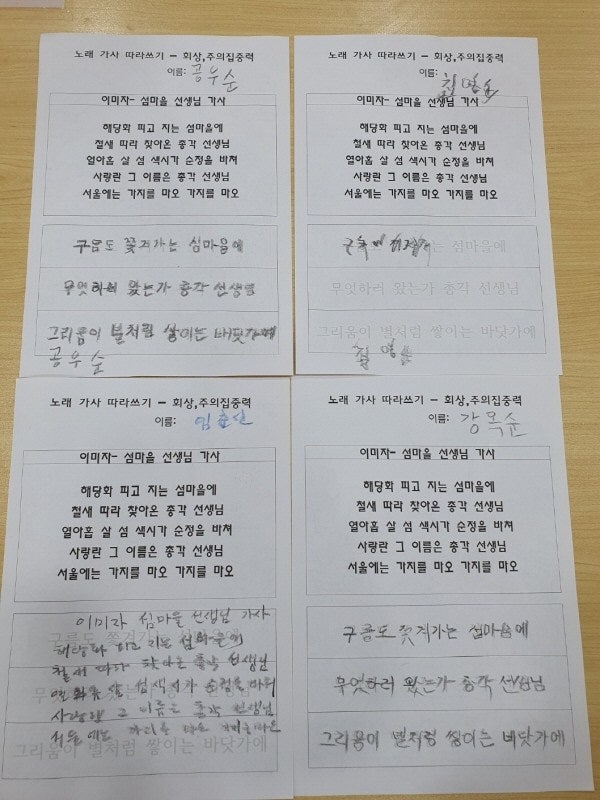 노래 가사 따라쓰기 – 회상,주의집중력
이름: 공우순
이미자- 섬마을 선생님 가사
해당화 피고 지는 섬마을에
철새 따라 찾아온 총각 선생님
열아홉 살 섬 색시가 순정을 바쳐
사랑한 그 이름은 총각 선생님
서울에는 가지를 마오 가지를 마오
구름도 쫓겨가는 섬마을에
무엇하러 왔는가 총각 선생님
그리움이 별처럼 쌓이는 바닷가에
공우순
노래 가사 따라쓰기 – 회상,주의집중력
이름:
이미자- 섬마을 선생님 가사
해당화 피고 지는 섬마을에
철새 따라 찾아온 총각 선생님
열아홉 살 섬 색시가 순정을 바쳐
사랑한 그 이름은 총각 선생님
서울에는 가지를 마오 가지를 마오
는 섬마을에
무엇하러 왔는가 총각 선생님
그리움이 별처럼 쌓이는 바닷가에
노래 가사 따라쓰기 – 회상,주의집중력
이름: 임
이미자- 섬마을 선생님 가사
해당화 피고 지는 섬마을에
철새 따라 찾아온 총각 선생님
열아홉 살 섬 색시가 순정을 바쳐
사랑한 그 이름은 총각 선생님
서울에는 가지를 마오 가지를 마오
이미자 섬마을 선생님 가사
피고 지는 섬마을에
철새 따라 찾아온 총각 선생님
섬색시가 순정을
그 이름은 총각 선생님
가지를 마오
그리움이 별처럼 쌓이는 바닷가에
노래 가사 따라쓰기 – 회상,주의집중력
이름: 강옥순
이미자- 섬마을 선생님 가사
해당화 피고 지는 섬마을에
철새 따라 찾아온 총각 선생님
열아홉 살 섬 색시가 순정을 바쳐
사랑한 그 이름은 총각 선생님
서울에는 가지를 마오 가지를 마오
구름도 쫓겨가는 섬마을에
무엇하러 왔는가 총각 선생님
그리움이 별처럼 쌓이는 바닷가에